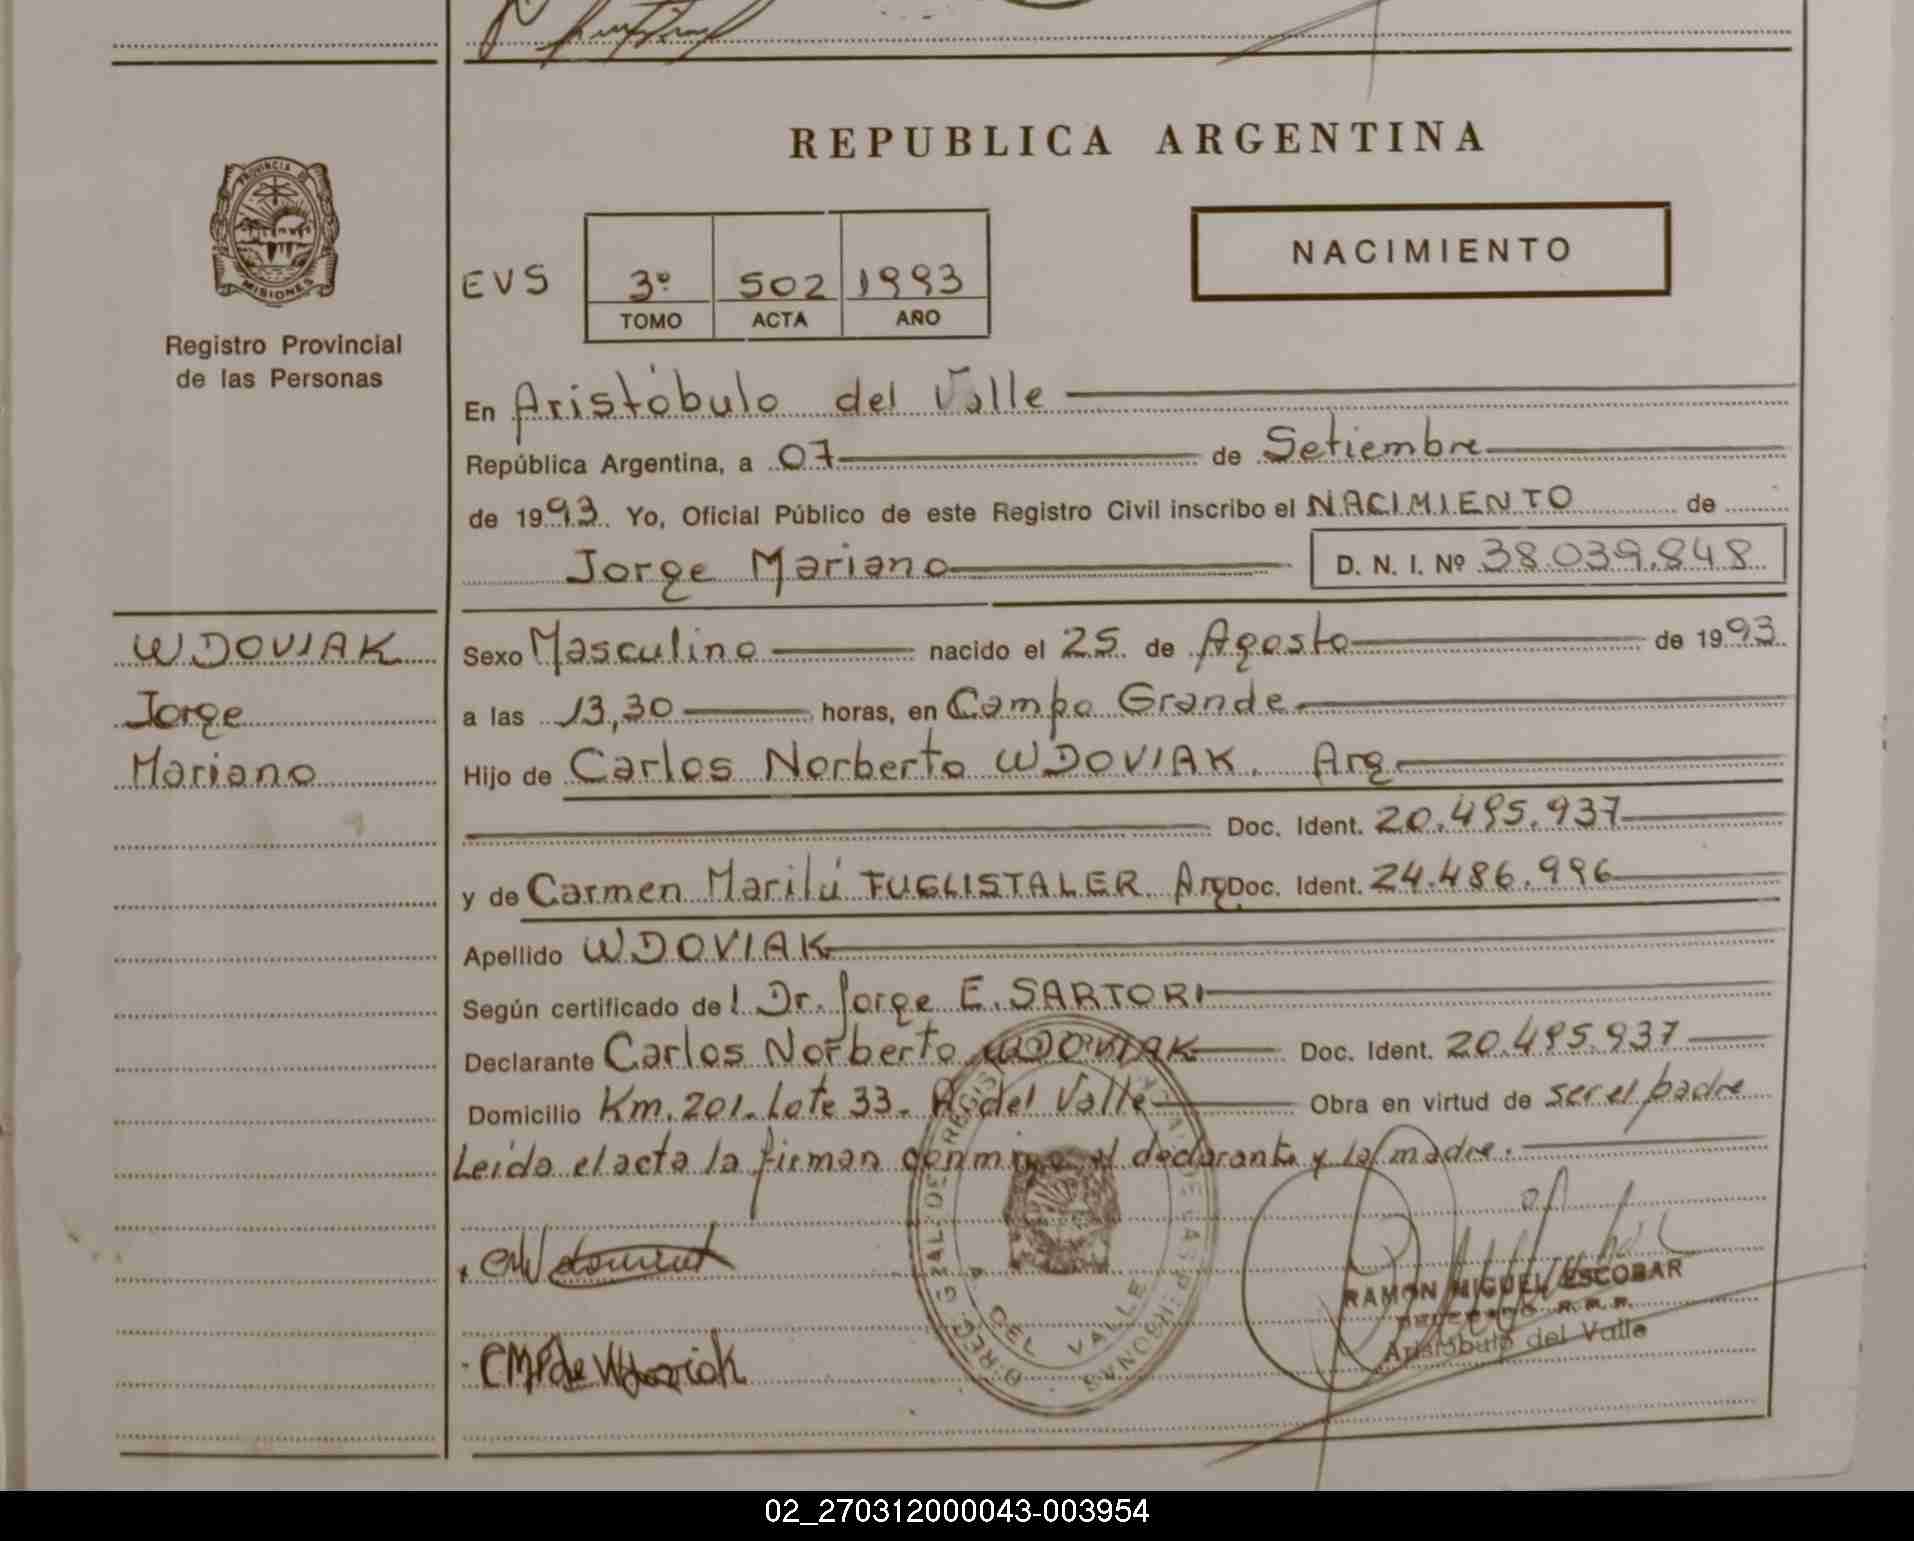 REPUBLICA ARGENTINA
PROVINCIA DE
MISIONES
Registro Provincial
de las Personas
NACIMIENTO
EVS 3º 502 1993
TOMO ACTA AÑO
En Aristóbulo del Valle
República Argentina, a 07 de Setiembre
de 1993. Yo, Oficial Público de este Registro Civil inscribo el NACIMIENTO de
Jorge Mariano D. N. I. Nº 38.039.848
WDOVIAK
Jorge
Mariano
Sexo Masculino nacido el 25 de Agosto de 1993
a las 13,30 horas, en Campo Grande
Hijo de Carlos Norberto WDOVIAK. Arg
Doc. Ident. 20.495.937
y de Carmen Marilú FUGLISTALER Arg. Doc. Ident. 24.486.996
Apellido WDOVIAK
Según certificado del Dr. Jorge E. SARTORI
Declarante Carlos Norberto WDOVIAK Doc. Ident. 20.495.937
Domicilio Km. 201. Lote 33. A. del Valle Obra en virtud de ser el padre
Leida el acta la firman conmigo el declarante y la madre.
DEL VALLE
RAMON MIGUEL ESCOBAR
Aristóbulo del Valle
02_270312000043-003954